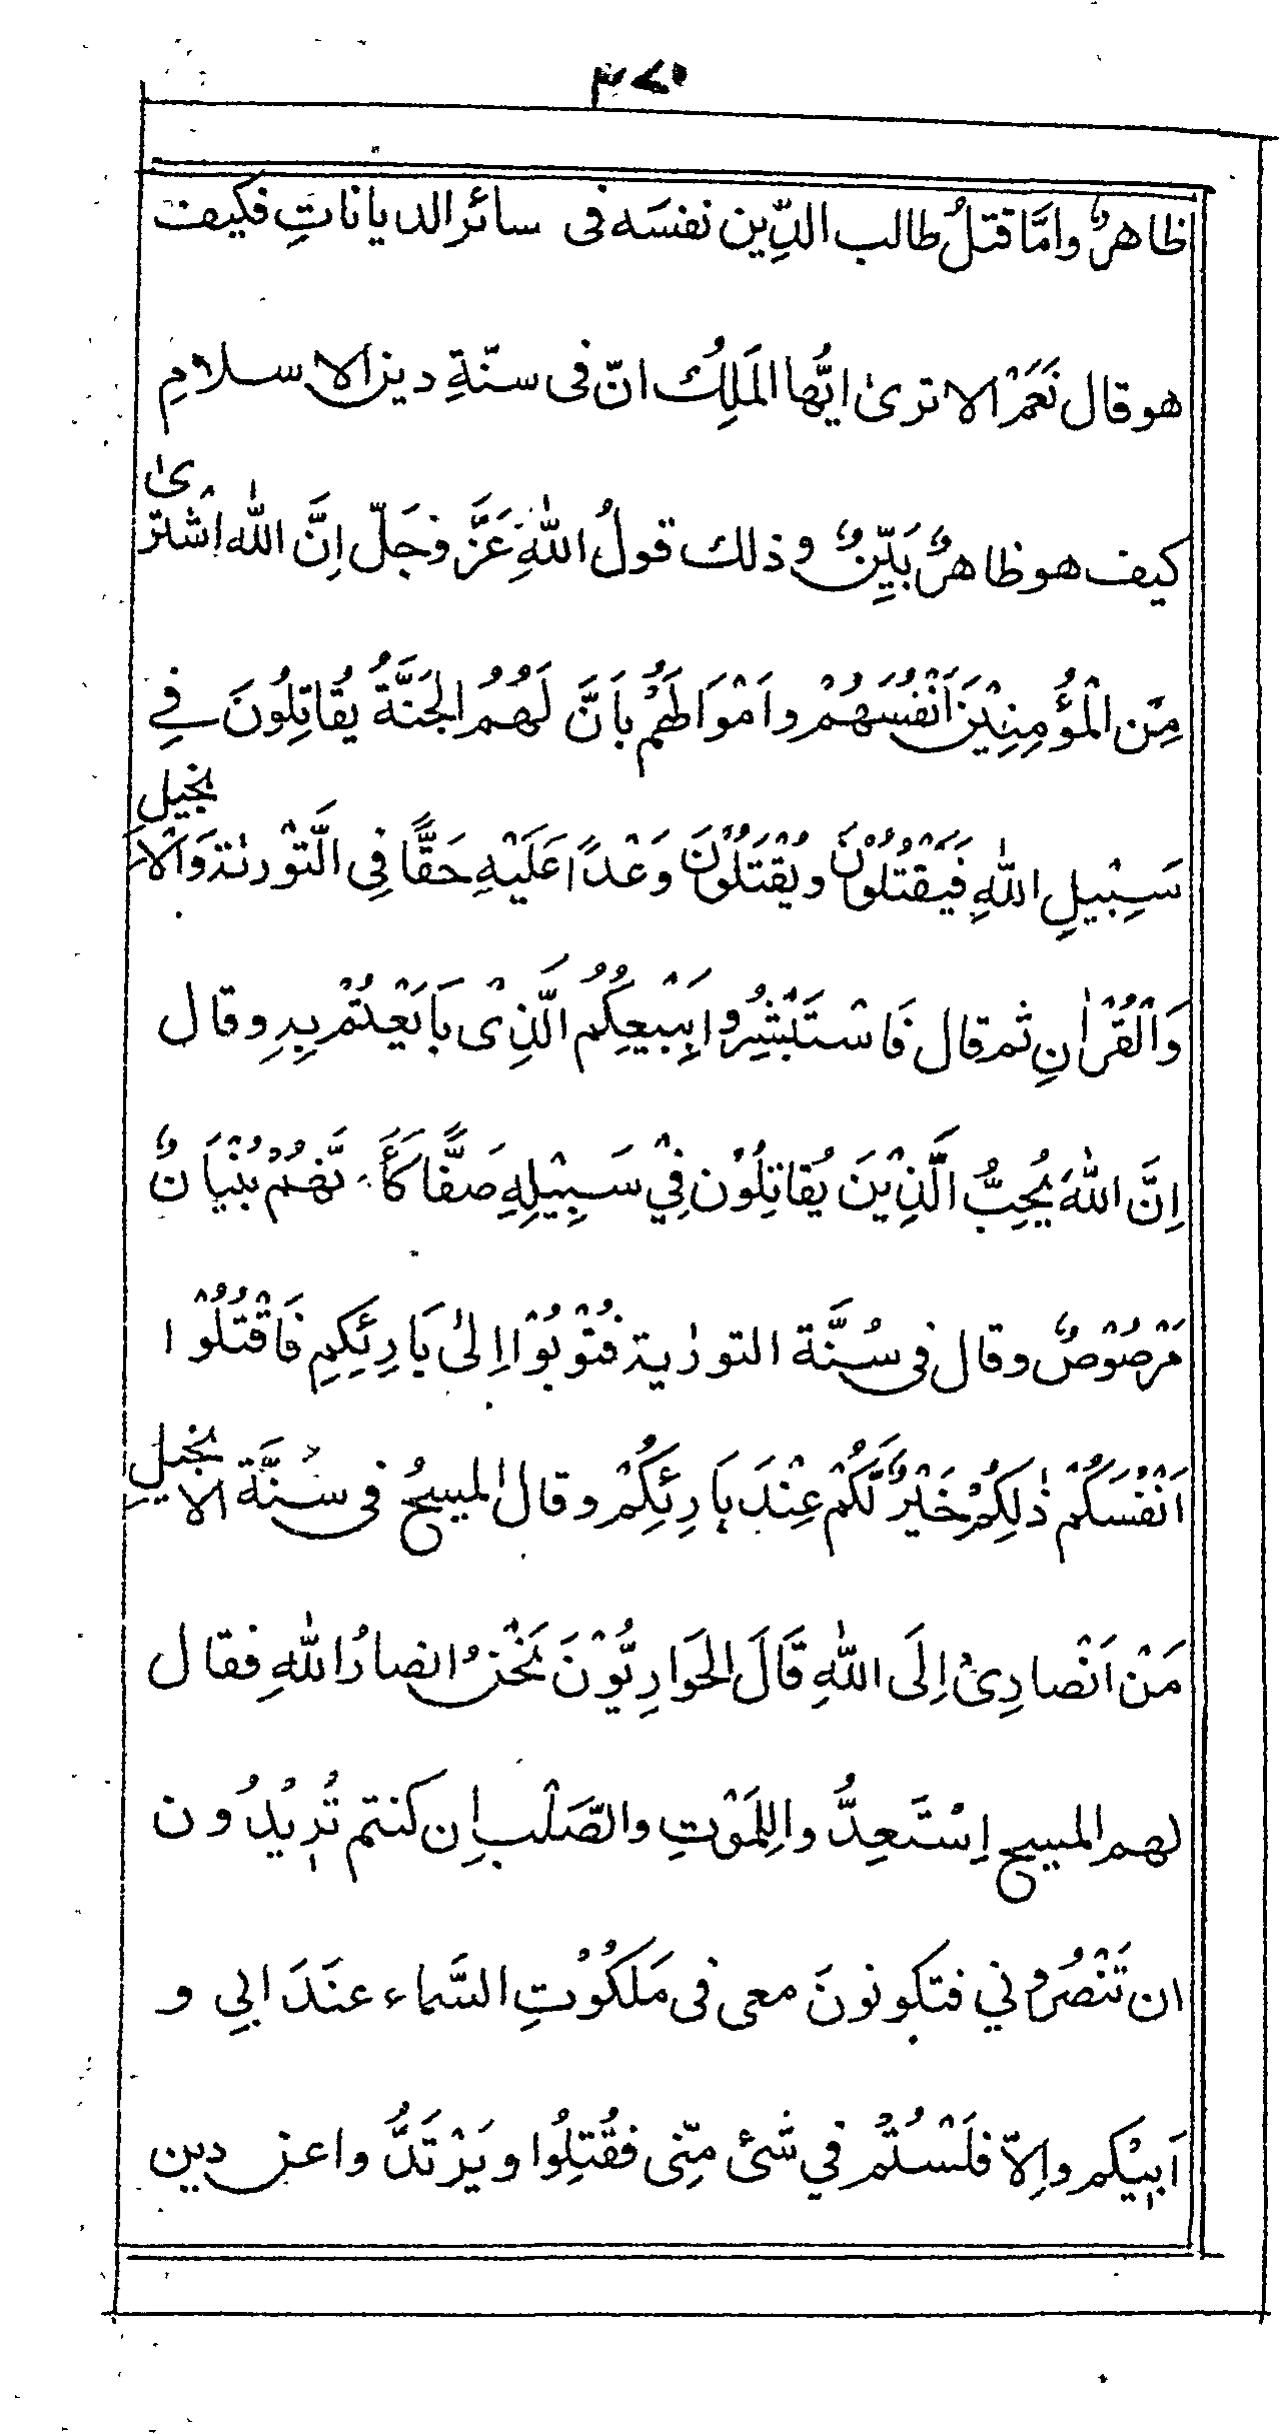 ٣٧٥
ظاهرٌ وامَّا قتلُ طالب الدِّين نفسَه فى سائر الديانات فكيف
هو قال نَعَمْ الا ترىٰ ايُّها المَلِكُ انّ فى سنّةِ دين الاسلامِ
كيف هو ظاهرٌ بَيِّنٌ وذلك قولُ اللهِ عَزَّ وجَلّ اِنَّ الله اشْترىٰ
مِنَ الْمُؤْمِنِيْنَ اَنْفُسَهُمْ واَمْوَالَهُمْ بِاَنَّ لَهُمُ الجَنَّةُ يُقاتِلُونَ فِي
سَبِيْلِ اللهِ فَيَقْتُلُوْنَ ويُقْتَلُوْنَ وَعْدًا عَلَيْهِ حَقًّا فِى التَّوْرٰىةِ وَالْاِنجيلِ
وَالْقُرْاٰنِ ثم قال فَاسْتَبْشِرُوا بِبَيْعِكُمُ الَّذِىْ بَايَعْتُمْ بِهِ وقال
اِنَّ اللهَ يُحِبُّ الَّذِيْنَ يُقاتِلُوْن فِيْ سَبِيْلِهِ صَفًّا كَاَنَّهُمْ بُنْيَانٌ
مَرْصُوْصٌ وقال فى سُنَّة التورٰية فَتُوْبُوْا اِلىٰ بَارِئِكِمِ فَاقْتُلُوْا
اَنْفُسَكُمْ ذٰلِكُمْ خَيْرٌ لَّكُمْ عِنْدَ بَارِئِكُمْ وقال المسيحُ فى سُنَّة الانجيلِ
مَنْ اَنْصارِىْ اِلَى اللهِ قَالَ الحَوارِيُّوْنَ نَحْنُ انصارُ اللهِ فقال
لهم المسيح اِسْتَعِدُّوا لِلمَوْتِ والصَّلْب اِن كنتم تُرِيْدُون
ان تَنْصُرُونِي فتكونونَ معى فى مَلكُوْتِ السَّماء عنَدَ ابِي و
اَبِيْكم واِلاّ فلَسْتُمْ في شَئ مِنّى فقُتِلُوا ويَرْتَدُّوا عن دين